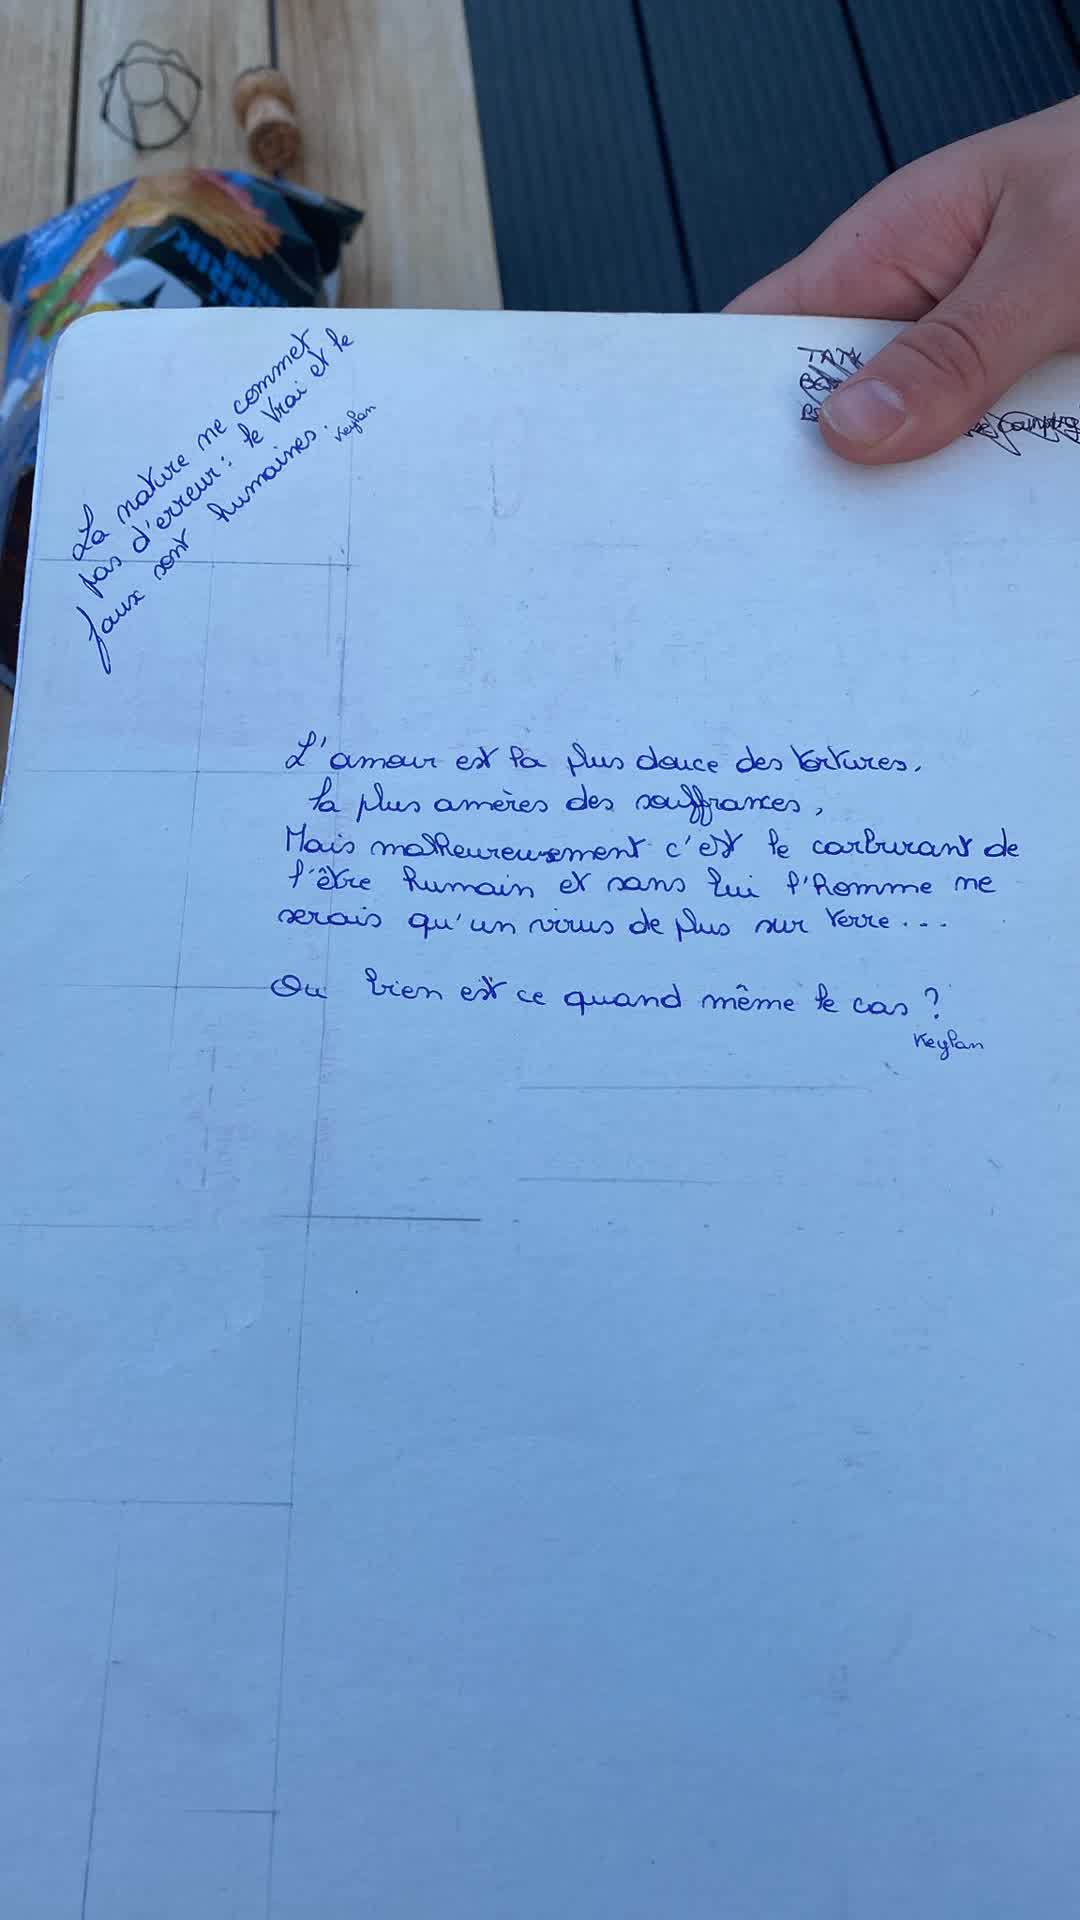 La nature ne commet
pas d'erreur : le Vrai et le
faux sont humaines.
Keylan
TANK
L'amour est la plus douce des tortures,
la plus amères des souffrances,
Mais malheureusement c'est le carburant de
l'être humain et sans lui l'Homme ne
serais qu'un virus de plus sur Terre...
Ou bien est ce quand même le cas ?
Keylan